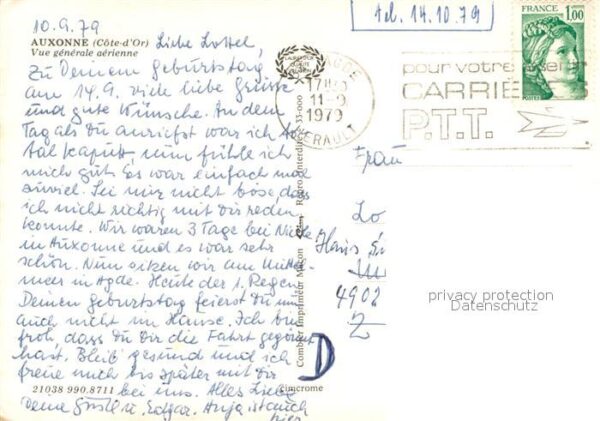 10.9.79
tel. 14.10.79
AUXONNE (Côte-d'Or)
Vue générale aérienne
Liebe Lottel,
Zu Deinem Geburtstag
am 14.9. viele liebe Grüsse
und gute Wünsche. An dem
Tag als Du anriefst war ich to-
tal kaputt, nun fühle ich
mich gut. Es war einfach mal
zuviel. Sei mir nicht böse, dass
ich nicht richtig mit Dir reden
konnte. Wir waren 3 Tage bei
in Auxonne und es war sehr
schön. Nun sitzen wir am Mittel-
meer in Agde. Heute der 1. Regen.
Deinen Geburtstag feierst Du nun
auch nicht im Hause. Ich bin
froh, dass Du Dir die Fahrt gegönnt
hast. Bleib gesund und ich
freue mich bis später mit Dir
bei uns. Alles Liebe
Deine u. Edgar. Anja ist auch
hier
21038 990.8711
cimcrome
Combier Imprimeur Mâcon
33-000
AGDE
11-9
1979
HERAULT
pour votre
CARRIÈ
P.T.T.
FRANCE
1,00
POSTES
Frau
Lo
Hans
4902
2
D
privacy protection
Datenschutz